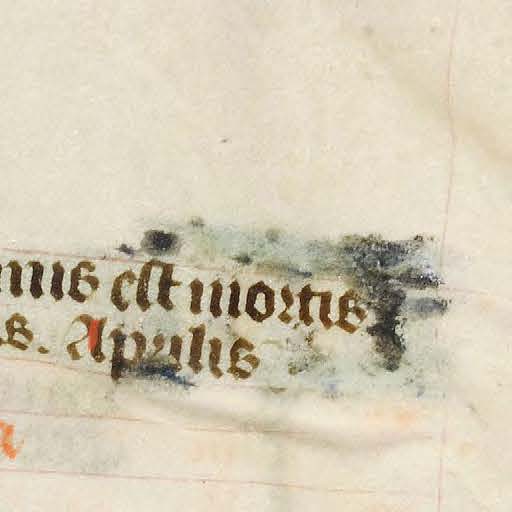 mus est mortis
s. Aprilis
a